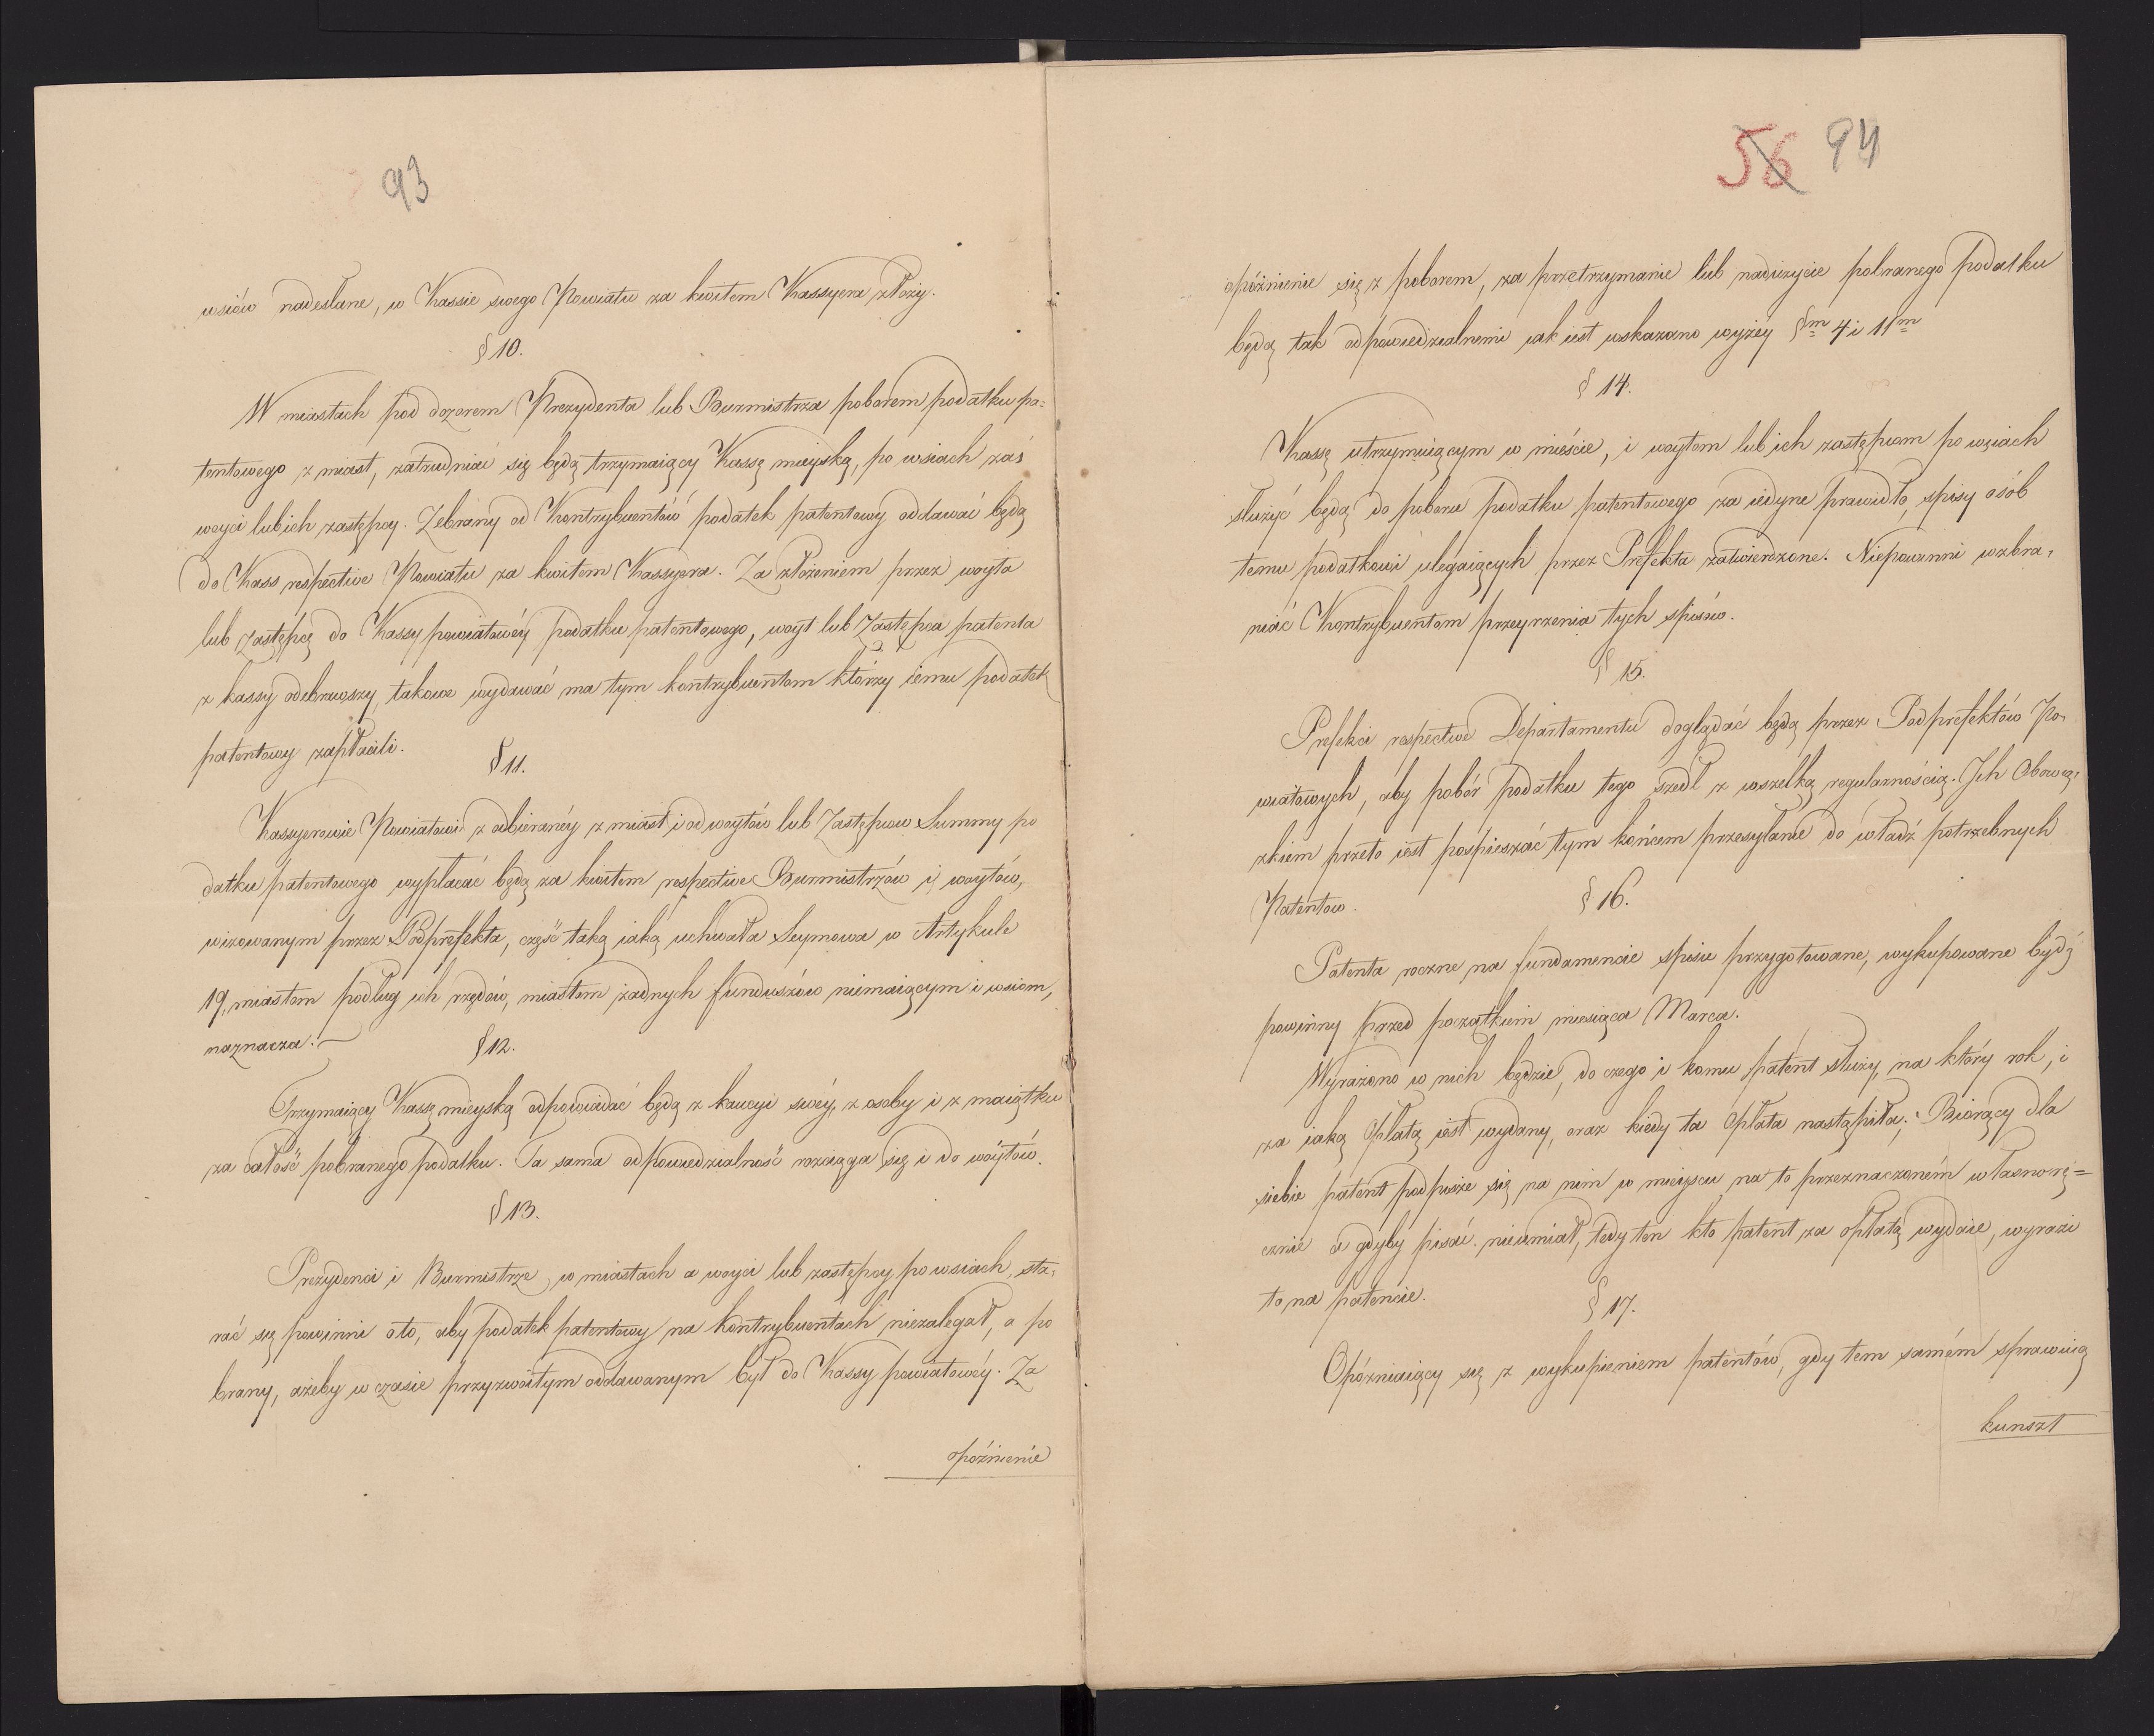 93
wsiów nadesłane, w Kassie swego Powiatu za kwitem Kassyera złoży.
§ 10.
W miastach pod dozorem Prezydenta lub Burmistrza poborem podatku pa=
tentowego z miast, zatrudniać się będą trzymaiący Kassę mieyską, po wsiach zaś
woyci lub ich zastępcy. Zebrany od Kontrybuentów podatek patentowy oddawać będą
do Kass respective Powiatu za kwitem Kassyera. Za złożeniem przez woyta
lub Zastępcę do Kassy powiatowéy podatku patentowego, woyt lub Zastępca patenta
z kassy odebrawszy, takowe wydawać ma tym kontrybuentom którzy iemu podatek
patentowy zapłacili.
§ 11.
Kassyerowie Powiatowi z odbieranéy z miast i od woytów lub Zastępcow Summy po
datku patentowego wypłacać będą za kwitem respective Burmistrzów i woytów,
wizowanym przez Podprefekta, część taką iaką uchwała Seymowa w Artykule
19, miastom podług ich rzędów, miastom żadnych funduszów niemaiącym i wsiom,
naznacza.—
§ 12.
Trzymaiący Kassę mieyską odpowiadać będą z kaucyi swéy, z osoby i z maiątku
za całość pobranego podatku. Ta sama odpowiedzialność rozciąga się i do wóytów.
§ 13.
Prezydenci i Burmistrze w miastach a woyci lub zastępcy po wsiach, sta,
rać się powinni oto, aby podatek patentowy na kontrybuentach niezalegał, a po
brany, ażeby w czasie przyzwoitym oddawanym był do Kassy powiatowéy. Za
opóźnienie
56 94
opóźnienie się z poborem, za przetrzymanie lub nadużycie pobranego podatku
będą tak odpowiedzialnemi iak iest wskazano wyżéy §m 4 i 11m
§ 14.
Kassę utrzymuiącym w mieście, i woytom lub ich zastępcom po wsiach
służyć będą do poboru podatku patentowego za iedyne prawidło, spisy osób
temu podatkowi ulegaiących przez Prefekta zatwierdzone. Niepowinni wzbra,
niać Kontrybuentom przeyrzenia tych spisów.
§ 15.
Prefekci respective Departamentu doglądać będą przez Podprefektów Po,
wiatowych, aby pobór podatku tego szedł z wszelką regularnością. Ich Obowią,
zkiem przeto iest pospieszać tym końcem przesyłanie do władz potrzebnych
Patentow.
§ 16.
Patenta roczne na fundamencie spisu przygotowane, wykupowane bydź
powinny przed początkiem miesiąca Marca.
Wyrażono w nich będzie, do czego i komu patent służy, na który rok, i
za iaką Opłatą iest wydany, oraz kiedy ta Opłata nastąpiła; Biorący dla
siebie patent podpisze się na nim w mieyscu na to przeznaczoném własnorę=
cznie a gdyby pisać nieumiał, tedy ten kto patent za opłatą wydaie, wyrazi
to na patencie.
§ 17.
Opóźniaiący się z wykupieniem patentów, gdy tem samém sprawuią
kunszt